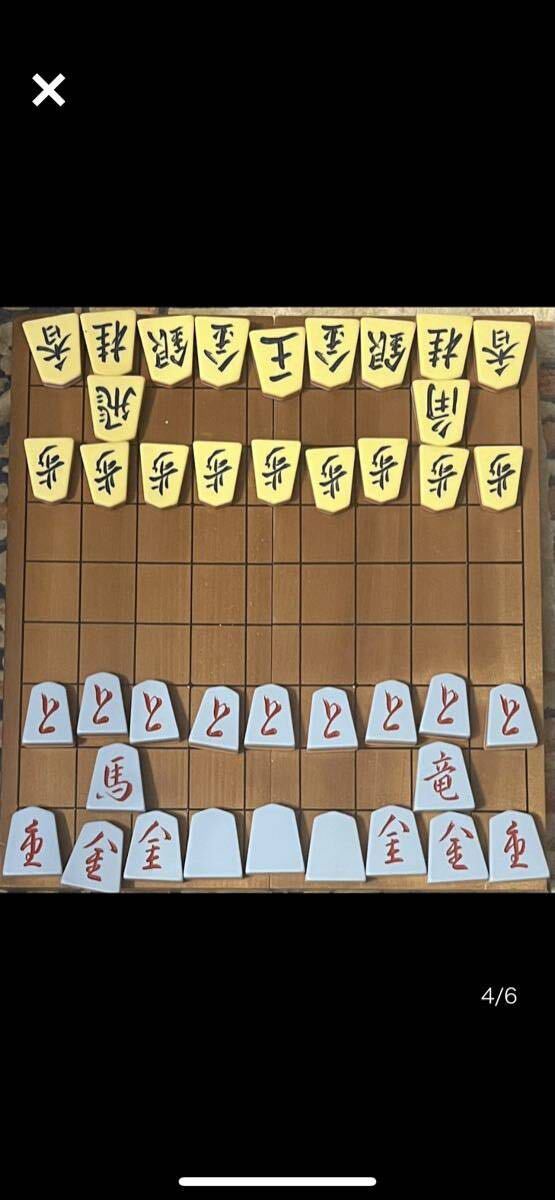 香 桂 銀 金 王 金 銀 桂 香
飛 角
歩 歩 歩 歩 歩 歩 歩 歩 歩
と と と と と と と と と
馬 竜
金 全 全 金
4/6